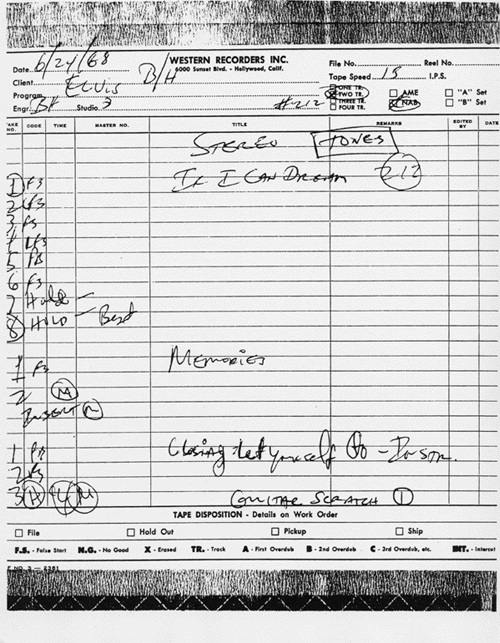 WESTERN RECORDERS INC.
6000 Sunset Blvd. - Hollywood, Calif.
Date 6/24/68
File No. Reel No.
Client B/H
Tape Speed 15 I.P.S.
Program ELVIS
ONE TR.
TWO TR.
THREE TR.
FOUR TR.
AME
NAB
"A" Set
"B" Set
Engr. BH Studio 3
#212
TAKE NO. CODE TIME MASTER NO. TITLE REMARKS EDITED BY DATE
STEREO TONES
1 FS IF I CAN DREAM 212
2 LFS
3 FS
4 LFS
5 FS
6 FS
7 Hold -
8 HOLD - Best
1 FS MEMORIES
2 M
INSERT M
1 FS Closing - Let yourself Go - Instr.
2 FS
3 H M
GUITAR SCRATCH 1
TAPE DISPOSITION - Details on Work Order
File Hold Out Pickup Ship
F.S. - False Start N.G. - No Good X - Erased TR. - Track A - First Overdub B - 2nd Overdub C - 3rd Overdub, etc. INT. - Intercut